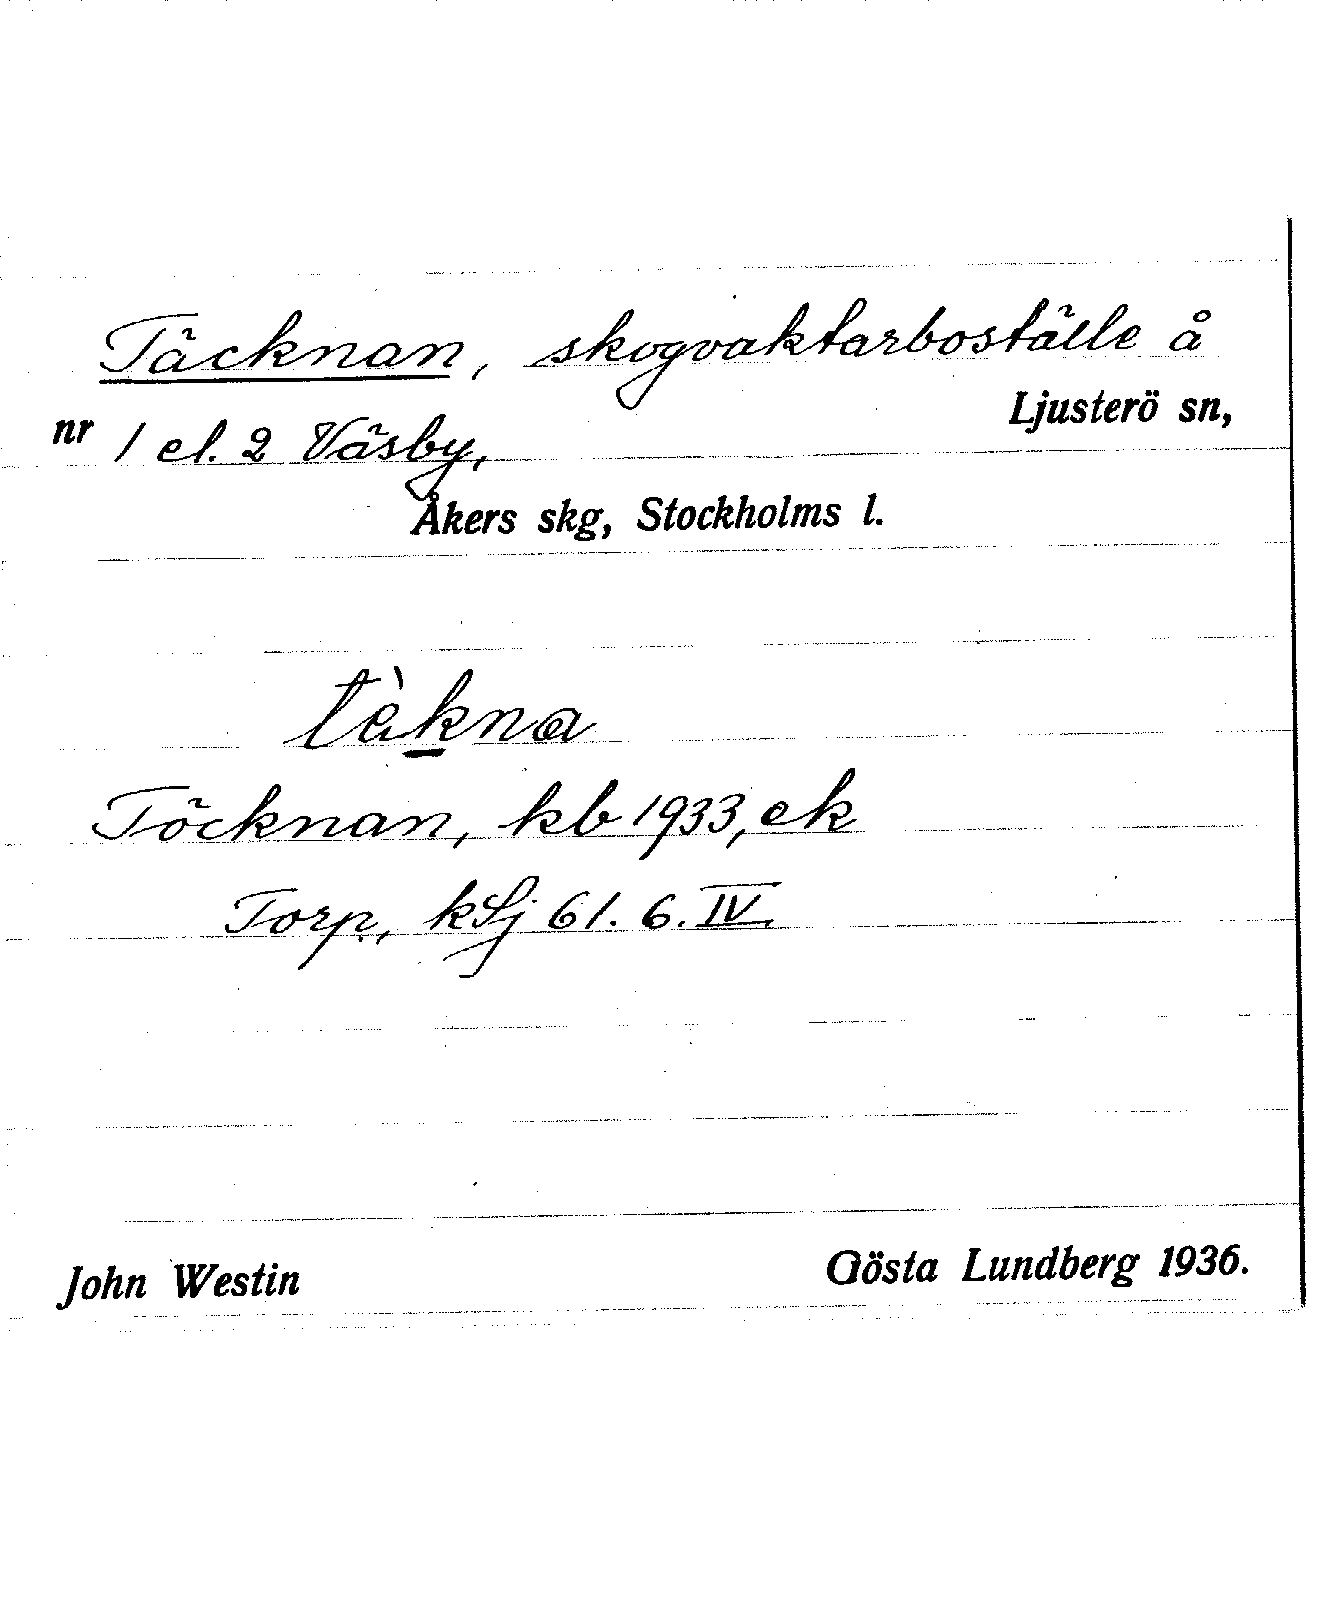 Täcknan, skogvaktarboställe å
Ljusterö sn,
nr 1 el. 2 Väsby,
Åkers skg, Stockholms l.
tèkna
Töcknan, kb 1933, ek
Torp, kLj 61. 6. IV.
John Westin Gösta Lundberg 1936.